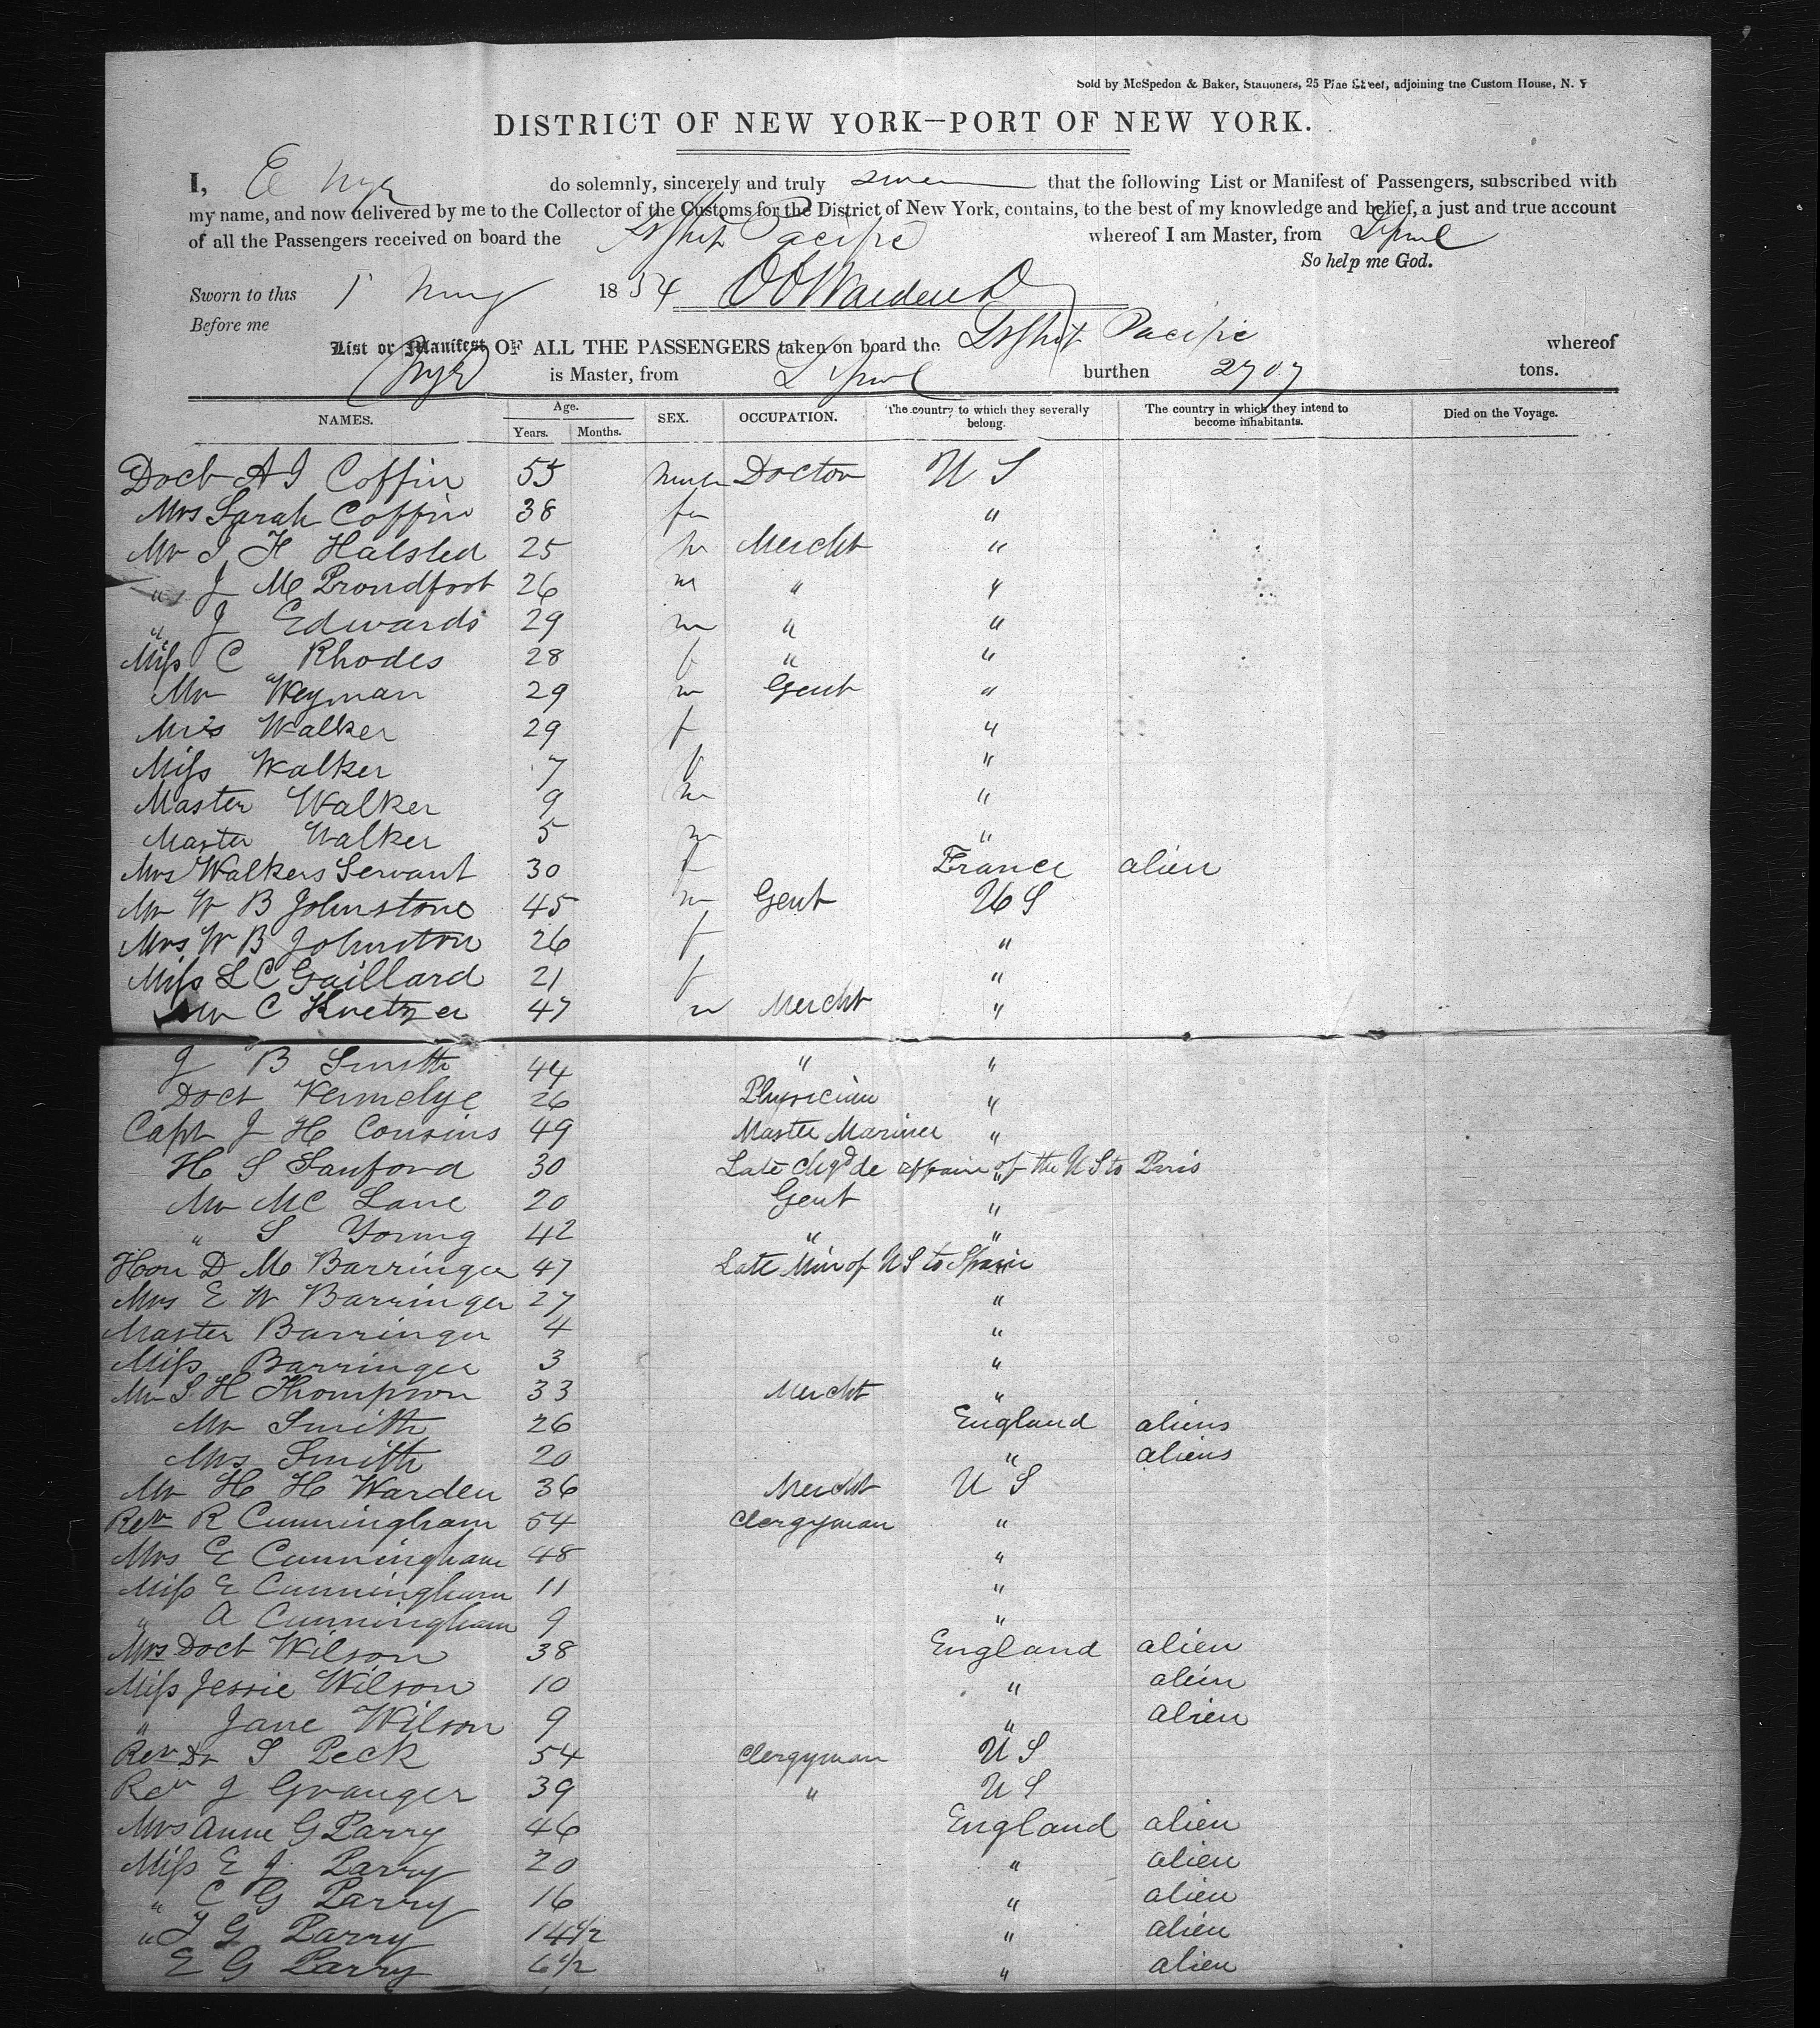 Sold by McSpedon & Baker, Stationers, 25 Pine Street, adjoining the Custom House, N. Y
DISTRICT OF NEW YORK—PORT OF NEW YORK.
I, E Nye do solemnly, sincerely and truly swear that the following List or Manifest of Passengers, subscribed with
my name, and now delivered by me to the Collector of the Customs for the District of New York, contains, to the best of my knowledge and belief, a just and true account
of all the Passengers received on board the Pacific whereof I am Master, from Lpool
So help me God.
Sworn to this 1 1854
Before me
List or Manifest OF ALL THE PASSENGERS taken on board the Pacific whereof
Nye is Master, from Lpool burthen 2707 tons.
NAMES. Age. Years. Months. SEX. OCCUPATION. The country to which they severally belong. The country in which they intend to become inhabitants. Died on the Voyage.
Doct A I Coffin 55 male Doctor U S
Mrs Sarah Coffin 38 fe "
Mr I H Halsted 25 m Mercht "
" J M Proudfoot 26 m " "
" J Edwards 29 m " "
Miss C Rhodes 28 f " "
Mr Weyman 29 m Gent "
Mrs Walker 29 f "
Miss Walker 7 f "
Master Walker 9 m "
Master Walker 5 m "
Mrs Walkers Servant 30 f France alien
Mr W B Johnstone 45 m Gent U S
Mrs W B Johnston 26 f "
Miss L C Gaillard 21 f "
Mr C Kuetzer 47 m Mercht "
J B Smith 44 " "
Doct Vermelye 26 Physician "
Capt J H Cousins 49 Master Mariner "
H S Sanford 30 Late Chgd de affairs of the U S to Paris "
Mr Mc Lane 20 Gent "
" S Young 42 " "
Hon D M Barringer 47 Late Min of U S to Spain "
Mrs E W Barringer 27 "
Master Barringer 4 "
Miss Barringer 3 "
Mr S H Thompson 33 Mercht "
Mr Smith 26 England aliens
Mrs Smith 20 " aliens
Mr H H Warden 36 Mercht U S
Rev R Cunningham 54 Clergyman "
Mrs E Cunningham 48 "
Miss E Cunningham 11 "
" A Cunningham 9 "
Mrs Doct Wilson 38 England alien
Miss Jessie Wilson 10 " alien
" Jane Wilson 9 " alien
Rev Dr S Peck 54 Clergyman U S
Rev J Granger 39 " U S
Mrs Anne G Parry 46 England alien
Miss E J Parry 20 " alien
" C G Parry 16 " alien
" J G Parry 14 1/2 " alien
E G Parry 6 1/2 " alien